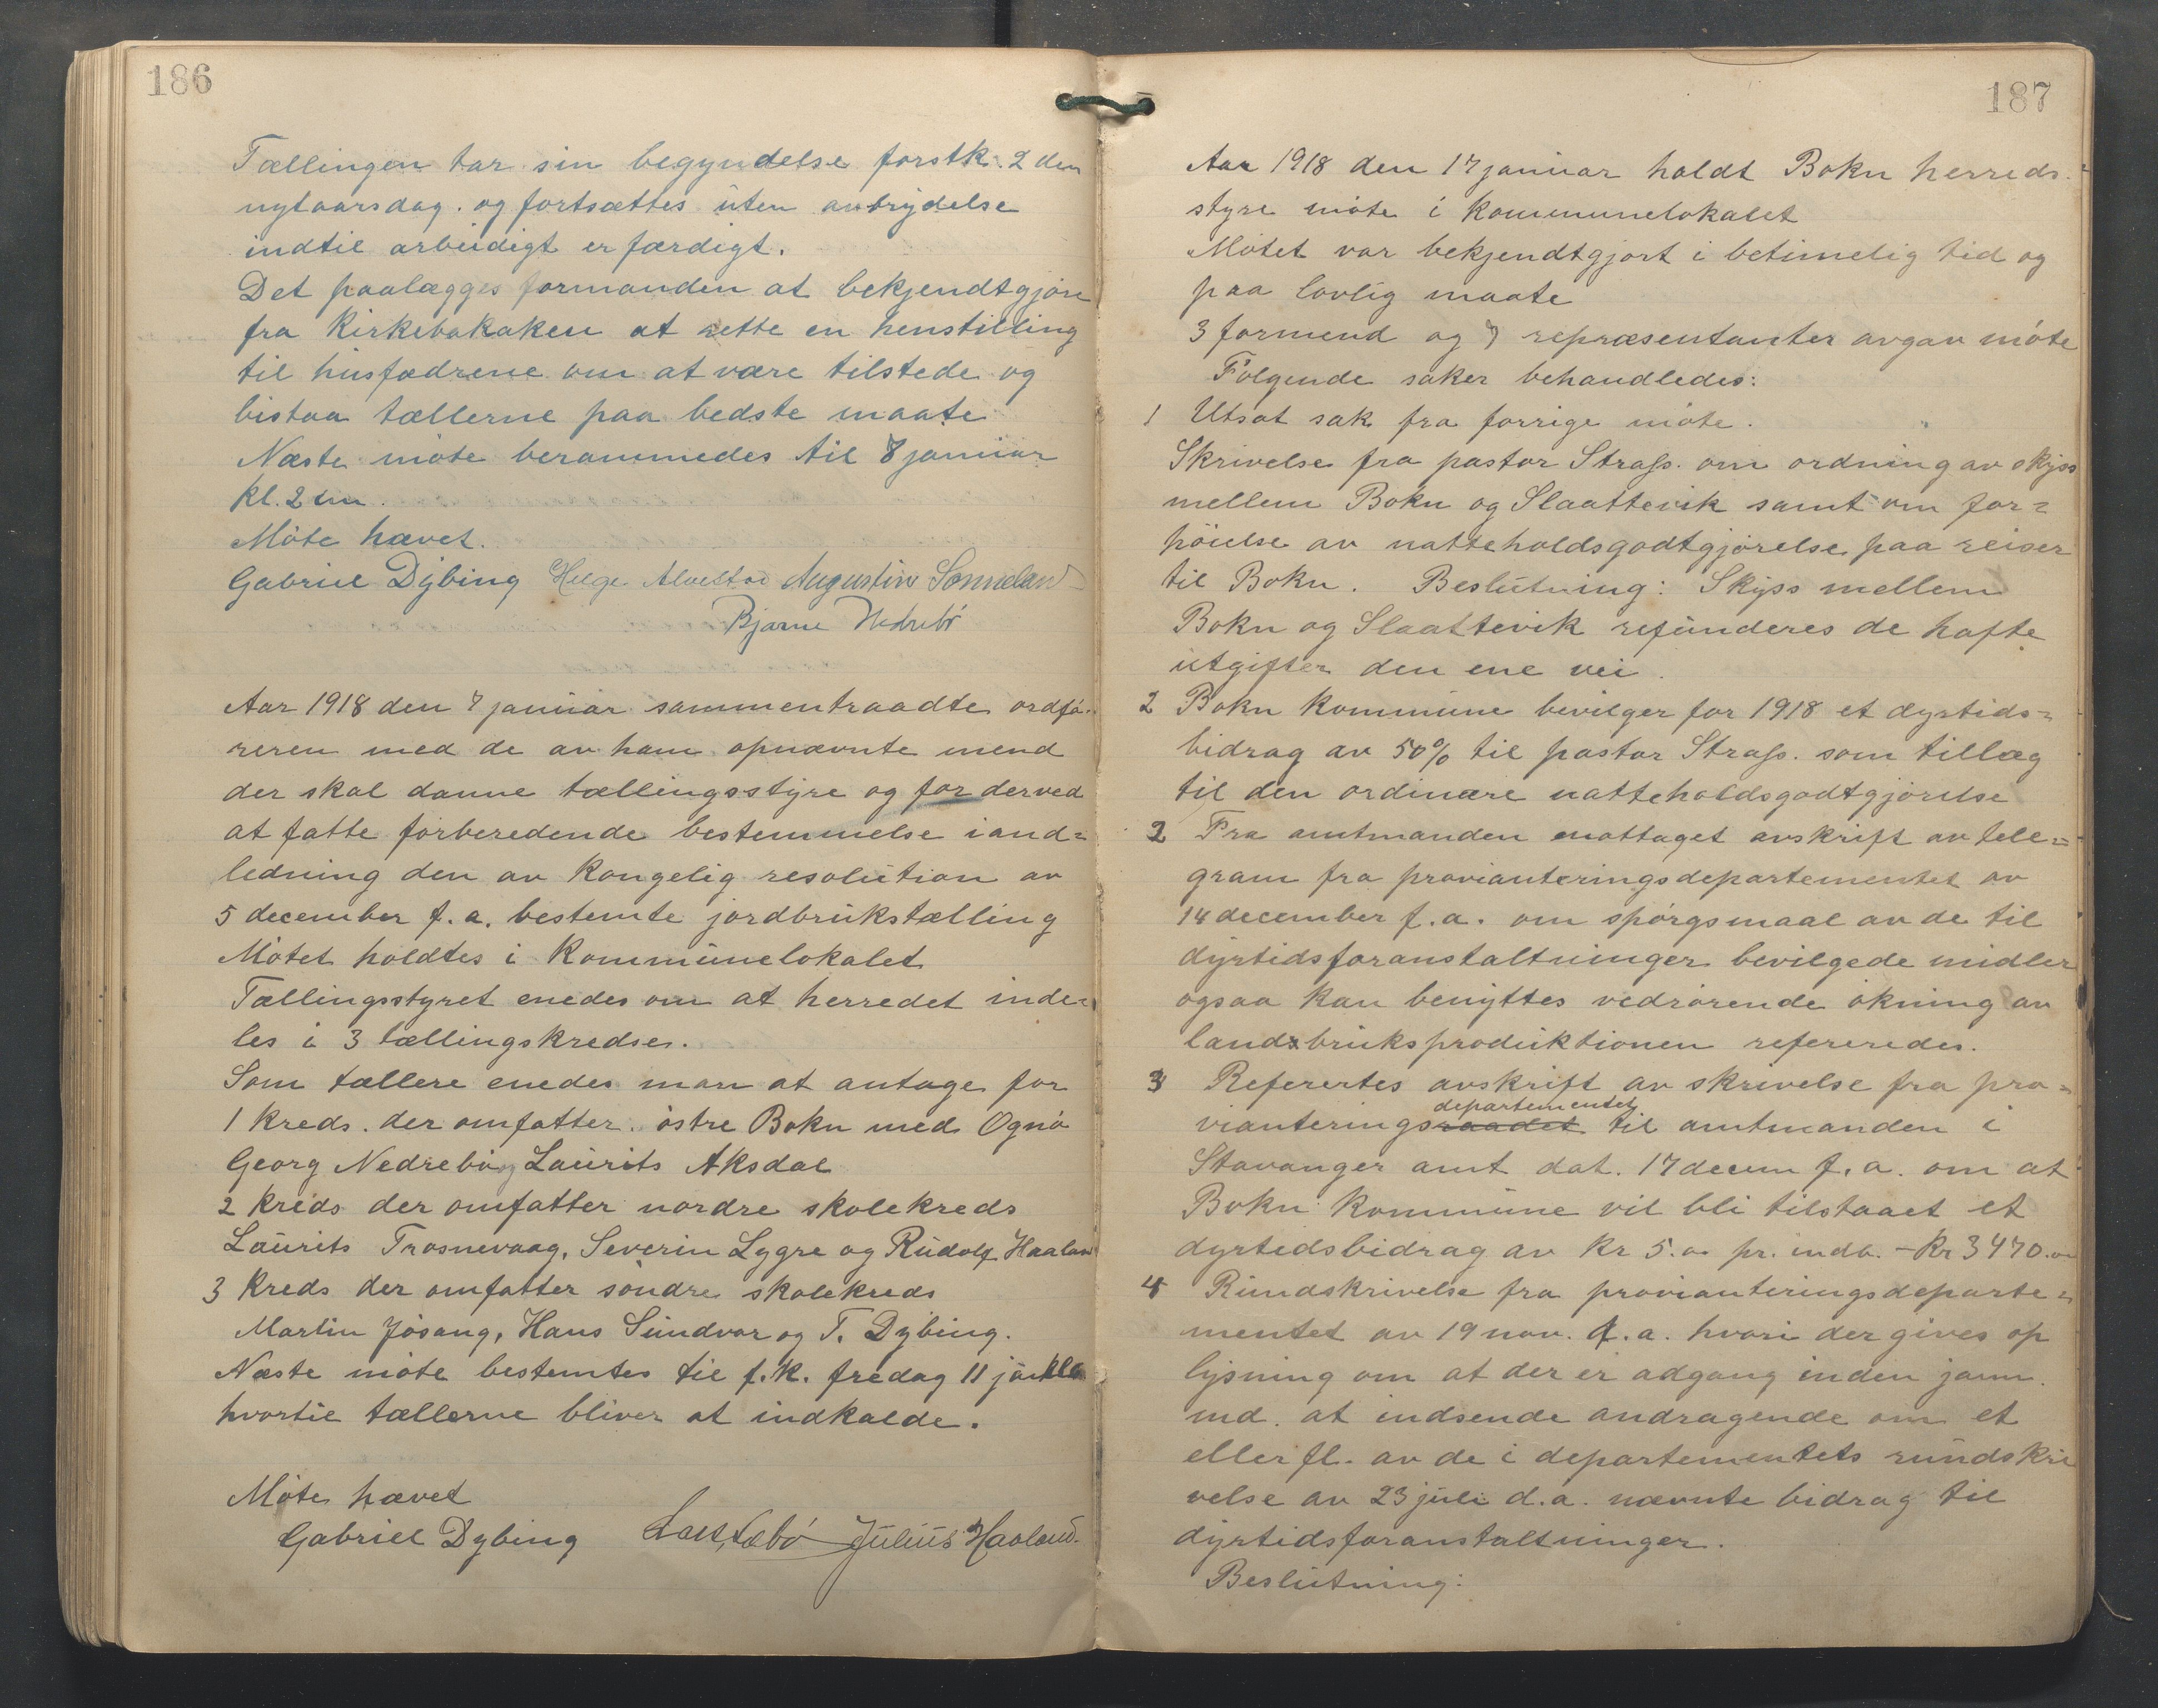 186
Tællingen tar sin begyndelse førstk. 2 den
nytaarsdag. og fortsættes uten avbrydelse
indtil arbeidigt er færdigt.
Det paalægges formanden at bekjendtgjøre
fra Kirkebakaken at rette en henstilling
til husfædrene om at være tilstede og
bistaa tællerne paa bedste maate
Næste møte berammedes til 8 januar
kl. 2 em.
Møte hævet.
Gabriel Dybing Helge Alvestad Augustin Sønneland
Bjarne Nedrebø
Aar 1918 den 7 januar sammentraadte ordfø-
reren med de av ham opnævnte mend
der skal danne tællingsstyre og for derved
at fatte forberedende bestemmelse i and=
ledning den av Kongelig resolution av
5 december f.a. bestemte jordbrukstælling
Møtet holdtes i Kommunelokalet
Tællingsstyret enedes om at herredet inde=
les i 3 tællingskredser.
Som tællere enedes man at antage for
1 Kreds. der omfatter. østre Bokn med Ognø
Georg Nedrebø, Laurits Aksdal
2 Kreds der omfatter nordre skolekreds
Laurits Trosnevaag, Severin Lygre og Rudolf Haaland
3 Kreds der omfatter søndre skolekreds
Martin Jøsang, Hans Sundvor og T. Dybing.
Næste møte bestemtes til f.k. fredag 11 jan
hvortil tællerne bliver at indkalde.
Møte hævet
Gabriel Dybing Julius Haaland.
187
Aar 1918 den 17 januar holdt Bokn herreds-
styre møte i Kommunelokalet
Møtet var bekjendtgjort i betimelig tid og
paa lovlig maate
3 formend og 7 repræsentanter avgav møte
Følgende saker behandledes:
1 Utsat sak fra forrige møte.
Skrivelse fra pastor Strass. om ordning av skyss
mellem Bokn og Slaattevik samt om for=
høielse av natteholdsgodtgjørelse paa reiser
til Bokn. Beslutning: Skyss mellem
Bokn og Slaattevik refunderes de hafte
utgifter den ene vei.
2 Bokn Kommune bevilger for 1918 et dyrtids=
bidrag av 50% til pastor Strass. som tillæg
til den ordinære natteholdsgodtgjørelse
2 Fra amtmanden mottaget avskrift av tele=
gram fra provianteringsdepartementet av
14 december f.a. om spørgsmaal av de til
dyrtidsforanstaltninger bevilgede midler
ogsaa kan benyttes vedrørende økning av
landsbruksproduktionen refereredes.
3 Refererte s avskrift av skrivelse fra pro=
departementet
vianteringsraadet til amtmanden i
Stavanger amt dat. 17 decem f.a. om at
Bokn Kommune vil bli tilstaaet et
dyrtidsbidrag av kr 5.oo pr. indb. – Kr 3470.oo
4 Rundskrivelse fra provianteringsdeparte=
mentet av 19 nov. f.a. hvori der gives op
lysning om at der er adgang inden janu.
md. at indsende andragende om et
eller fl. av de i departementets rundskri
velse av 23 juli d.a. nævnte bidrag til
dyrtidsforanstaltninger.
Beslutning: